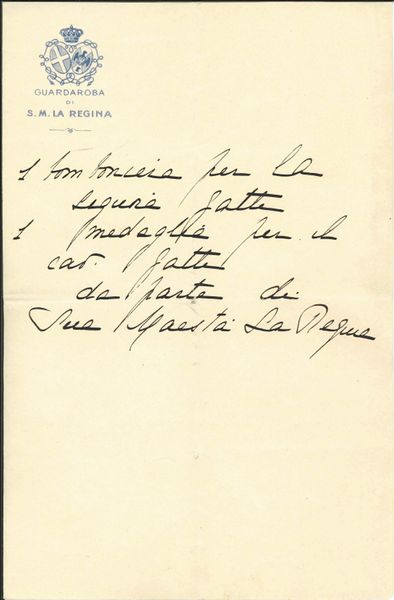 GUARDAROBA
DI
S.M. LA REGINA
1 bomboniera per la
signora Gatti
1 medaglia per il
cav. Gatti
da parte di
Sua Maestà La Regina